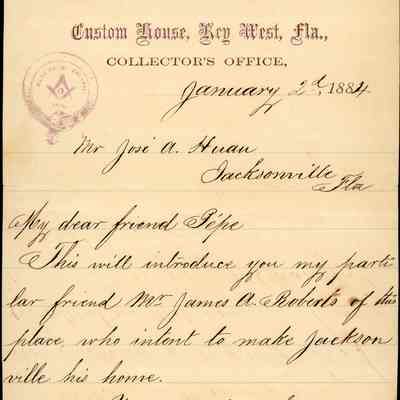 Custom House, Key West, Fla.,
COLLECTOR'S OFFICE,
January 2d, 1884
Mr José A. Huau
Jacksonville
Fla
My dear friend Pépe
This will introduce you my parti
lar friend Mr James A. Roberts of this
place, who intent to make Jackson
ville his home.